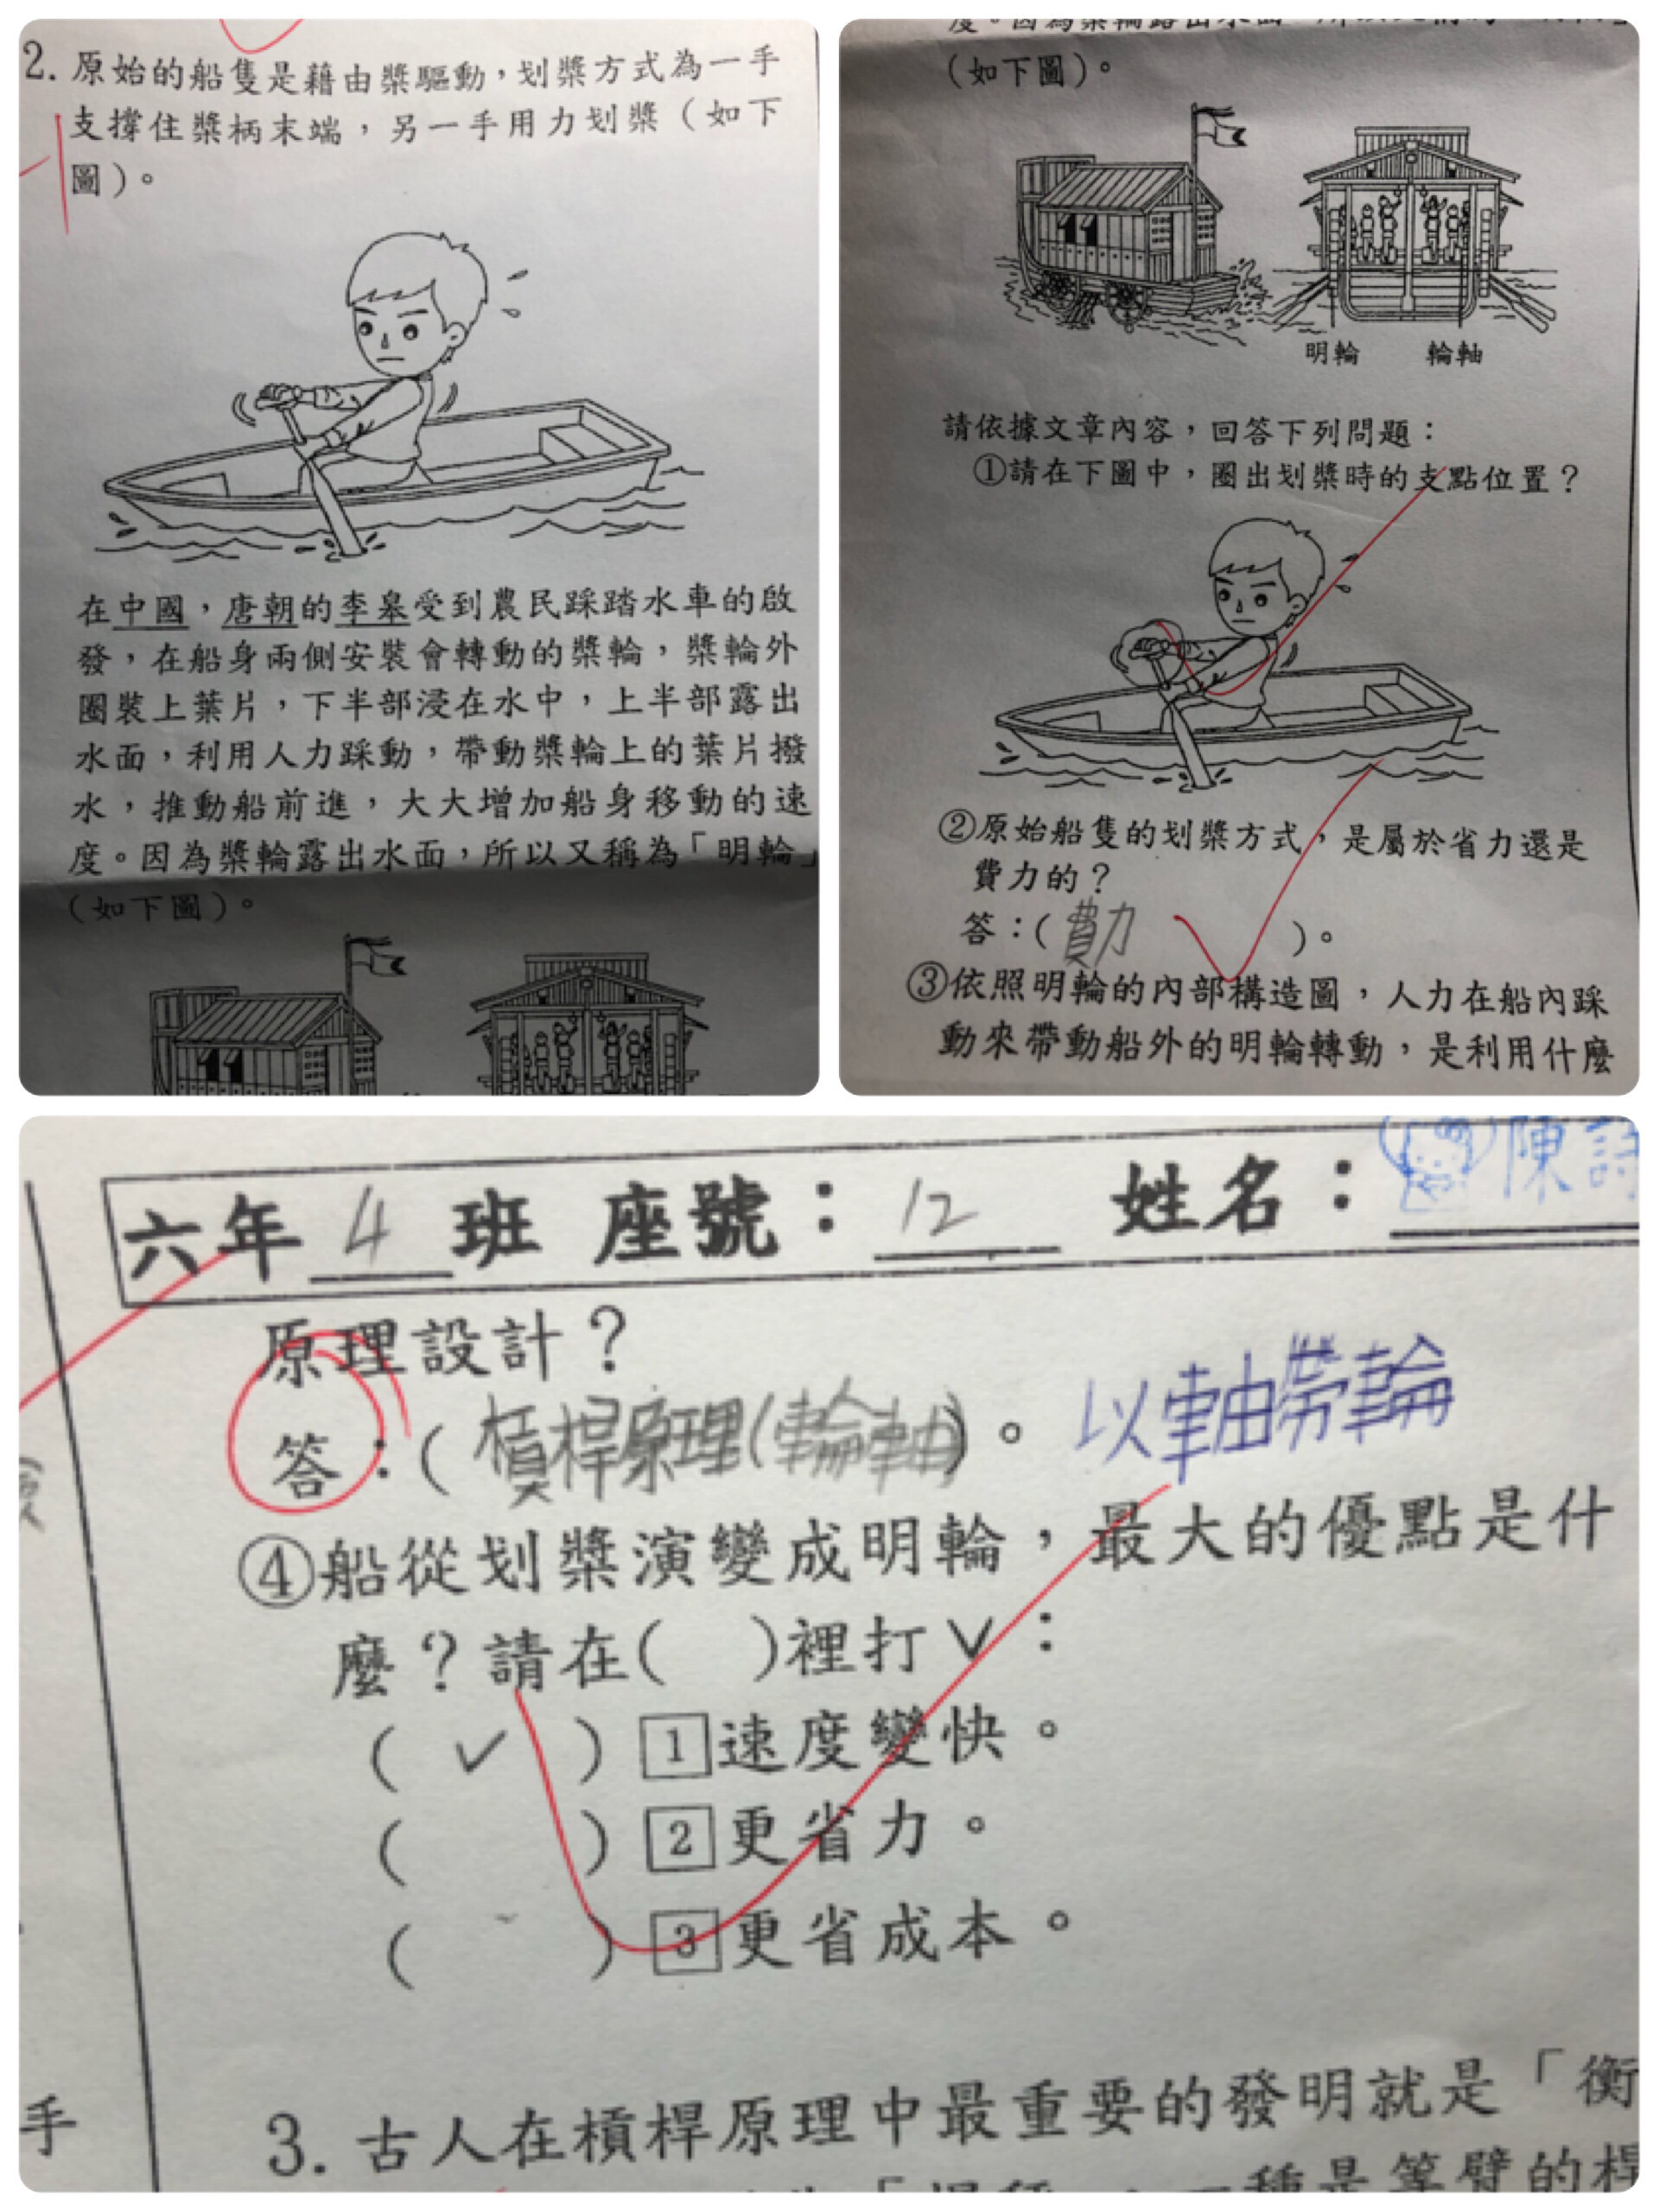 2. 原始的船隻是藉由槳驅動，划槳方式為一手
支撐住槳柄末端，另一手用力划槳（如下
圖）。
在中國，唐朝的李皋受到農民踩踏水車的啟
發，在船身兩側安裝會轉動的槳輪，槳輪外
圈裝上葉片，下半部浸在水中，上半部露出
水面，利用人力踩動，帶動槳輪上的葉片撥
水，推動船前進，大大增加船身移動的速
度。因為槳輪露出水面，所以又稱為「明輪」
（如下圖）。
度。因為槳輪露出水面
（如下圖）。
明輪 輪軸
請依據文章內容，回答下列問題：
①請在下圖中，圈出划槳時的支點位置？
②原始船隻的划槳方式，是屬於省力還是
費力的？
答：（費力）。
③依照明輪的內部構造圖，人力在船內踩
動來帶動船外的明輪轉動，是利用什麼
六年 4 班 座號：12 姓名：陳詩
原理設計？
答：（槓桿原理(輪軸)）。以軸帶輪
④船從划槳演變成明輪，最大的優點是什
麼？請在( )裡打✓：
( ✓ ) 1 速度變快。
( ) 2 更省力。
( ) 3 更省成本。
手
3. 古人在槓桿原理中最重要的發明就是「衡
一種是等臂的桿